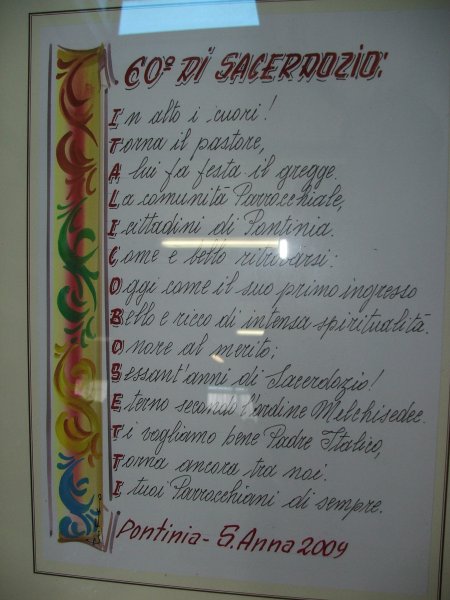 60º DI SACERDOZIO:
In alto i cuori!
Torna il pastore,
A lui fa festa il gregge.
La comunità Parrocchiale,
I cittadini di Pontinia.
Come e bello ritrovarsi:
Oggi come il suo primo ingresso
Bello e ricco di intensa spiritualità.
Onore al merito;
Sessant'anni di Sacerdozio!
Eterno secondo l'ordine Melchisedec.
Ti vogliamo bene Padre Italico,
Torna ancora tra noi.
I tuoi Parrocchiani di sempre.
Pontinia - S. Anna 2009